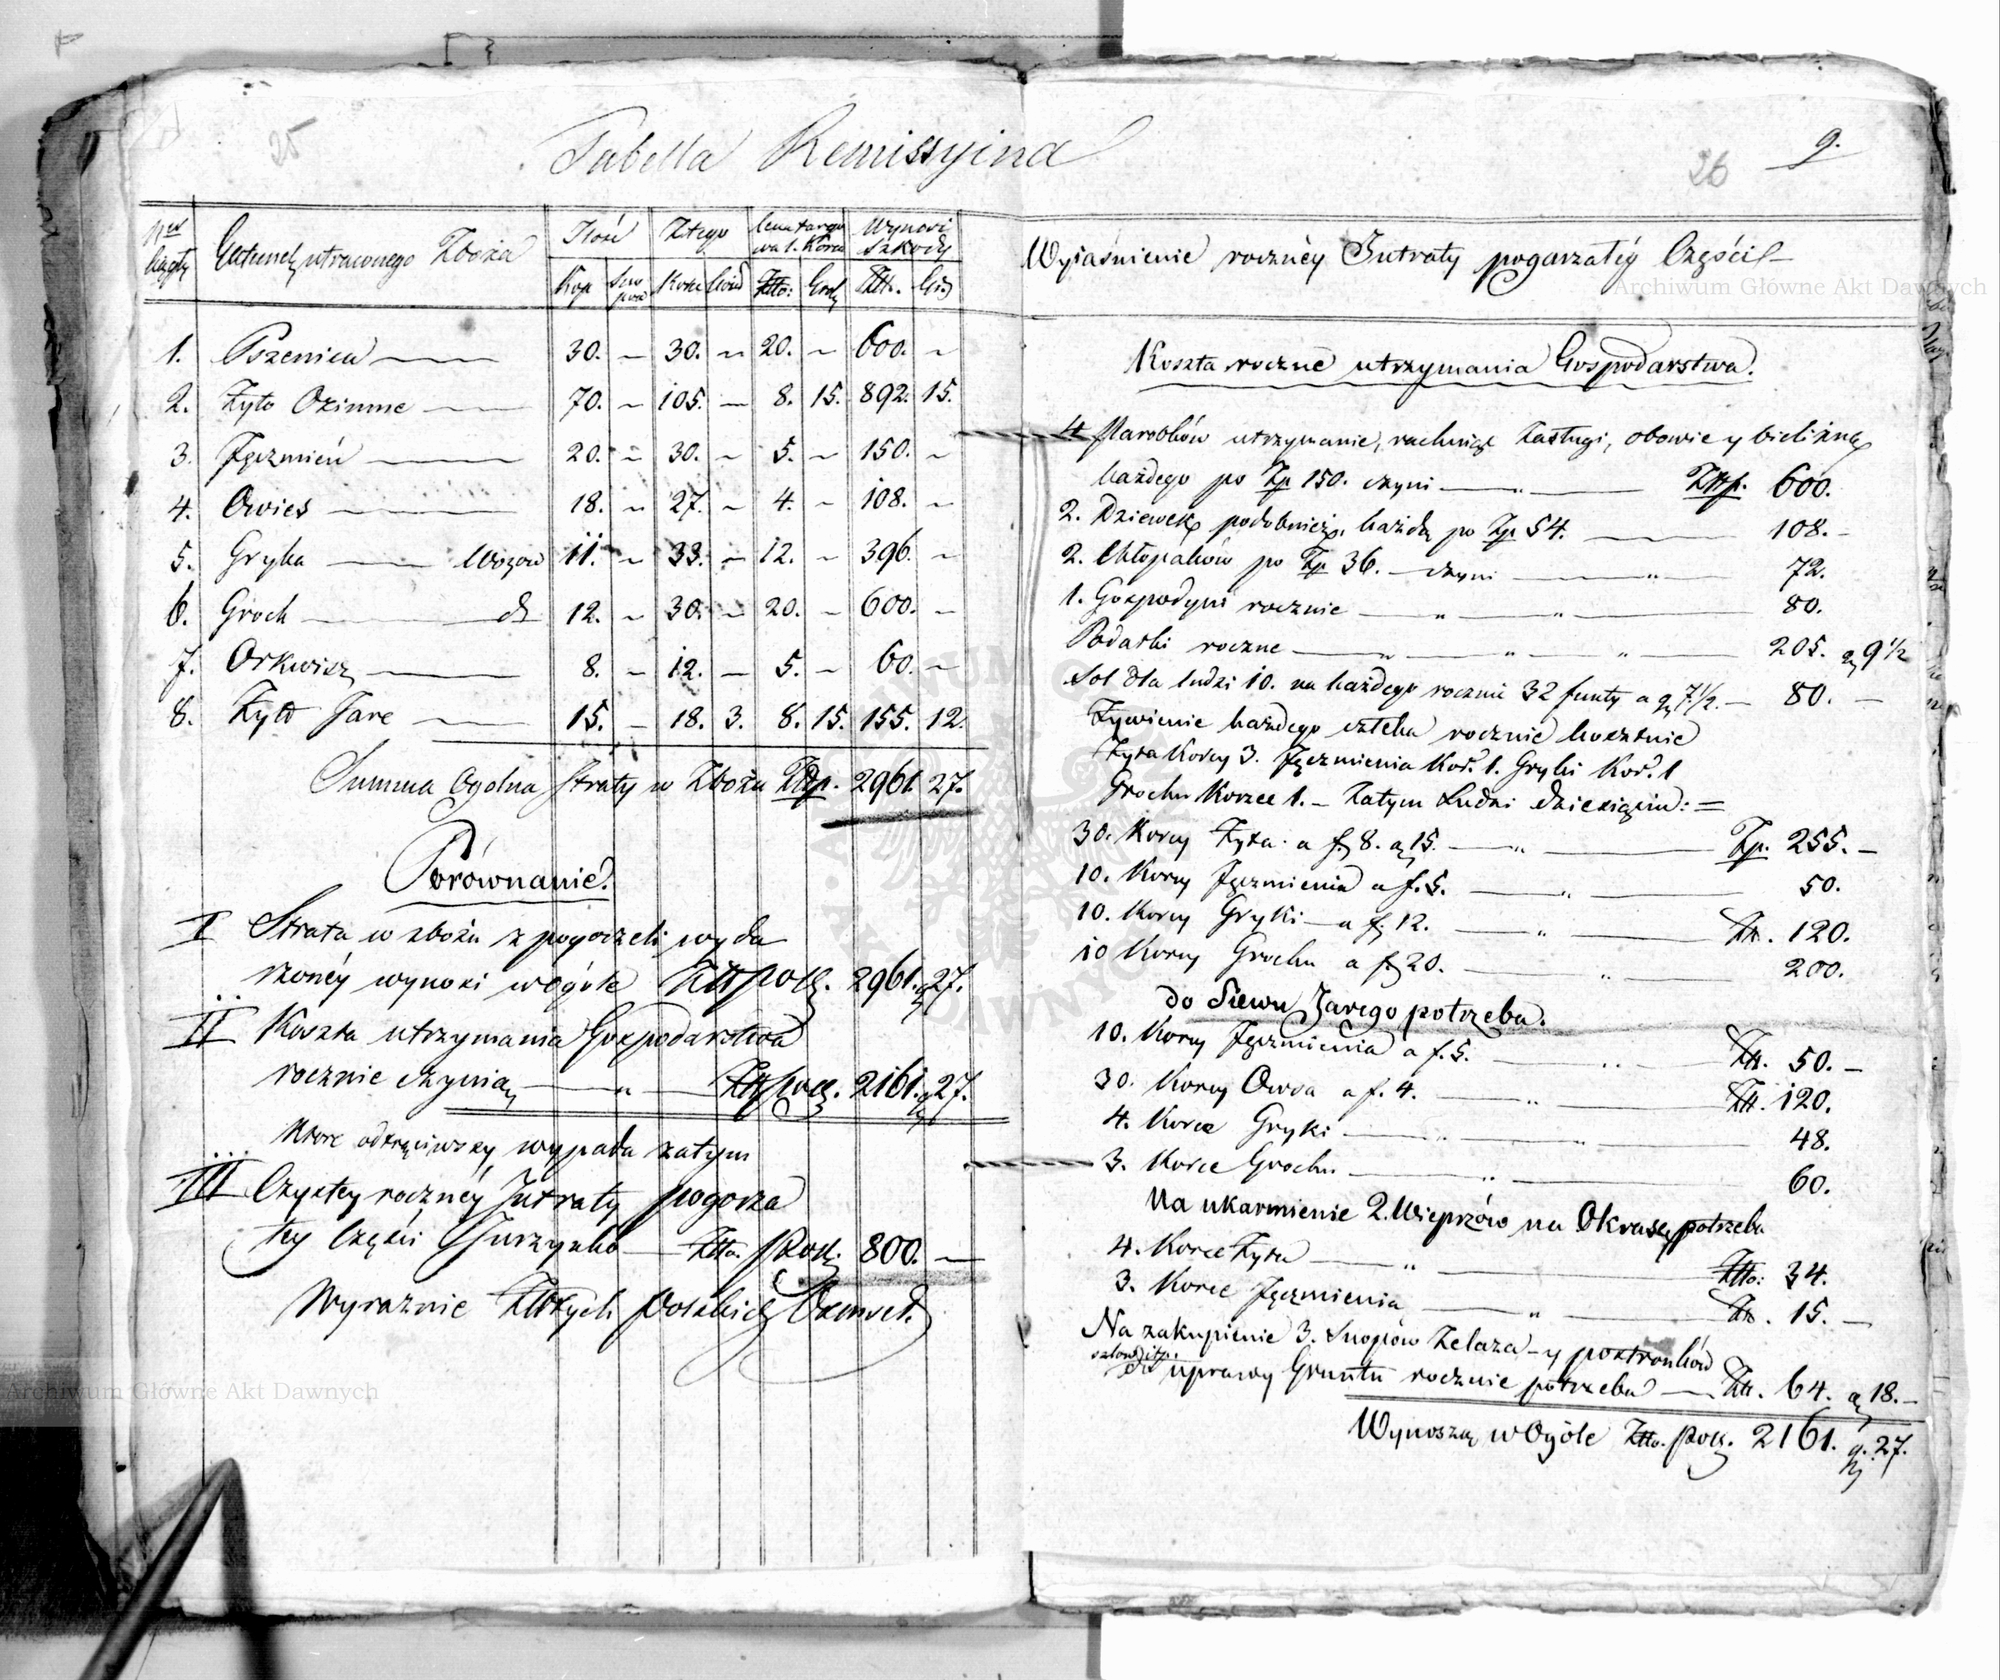 25
Tabella Remissyina
26
9.
Nro
liczby
Gatunek utraconego Zboża
Ilość
Z tego
Cena targo
wa 1. Korca
Wynosi
Szkody
Kop
Sno
pów
Korcy
Złto:
Groſzy
Złt.
Gr.
1. Pszenica 30. 30. 20. 600.
2. Żyto Ozimne 70. 105. 8. 15. 892. 15.
3. Jęczmień 20. 30. 5. 150.
4. Owies 18. 27. 4. 108.
5. Gryka Wozow 11. 33. 12. 396.
6. Groch d 12. 30. 20. 600.
7. Orkwisz 8. 12. 5. 60.
8. Żyto Jare 15. 18. 3. 8. 15. 155. 12.
Summa Ogolna straty w Zbożu Złtp. 2961. 27.
Porównanie.
I Strata w zbożu z pogorzeli wyda
rzonéy wynosi wogóle Złt Pols. 2961. g 27.
II Koszta utrzymania Gospodarstwa
rocznie czynią Złt Pols. 2161. g 27.
Które odtrąciwszy wypada zatym
III Czystey rocznéy Intraty pogorza
łey Części Złto. Pols. 800.
Wyraznie Złotych Polskich Osmset.
Wyiaśnienie rocznéy Intraty pogorzałéy Części
Koszta roczne utrzymania Gospodarstwa.
4 Parobków utrzymanie, rachując Zasługi, obowie y bieliznę
każdego po Zp 150. czyni Złtp. 600.
2. Dziewek podobnież, każda po Zp 54. 108.
2. Chłopaków po Zp 36. czyni 72.
1. Gospodyni rocznie 80.
Podatki roczne 205. g 9 1/2
Sol dla ludzi 10. na każdego rocznie 32 funty a g 7 1/2. 80.
Żywienie każdego człeka rocznie kosztuie
Żyta Korcy 3. Jęczmienia Kor. 1. Gryki Kor. 1
Grochu Korzec 1. Zatym Ludzi dziesięciu:
30. Korcy Żyta a f 8. g 15. Zp. 255.
10. Korcy Jęczmienia a f. 5. 50.
10. Korcy Gryki a f. 12. Złt. 120.
10 Korcy Grochu a f 20. 200.
do Siewu Jarego potrzeba.
10. Korcy Jęczmienia a f. 5. Złt. 50.
30. Korcy Owsa a f. 4. Złt. 120.
4. Korce Gryki 48.
3. Korce Grochu 60.
Na ukarmienie 2. Wieprzów na Okrasę potrzeba
4. Korce Żyta Złto: 34.
3. Korce Jęczmienia Złt. 15.
Na zakupienie 3. Snopów Żelaza y postronków
do uprawy Gruntu rocznie potrzeba Złt. 64. g 18.
Wynoszą w Ogóle Złto. Pols. 2161. g. 27.
Archiwum Główne Akt Dawnych
Archiwum Główne Akt Dawnych